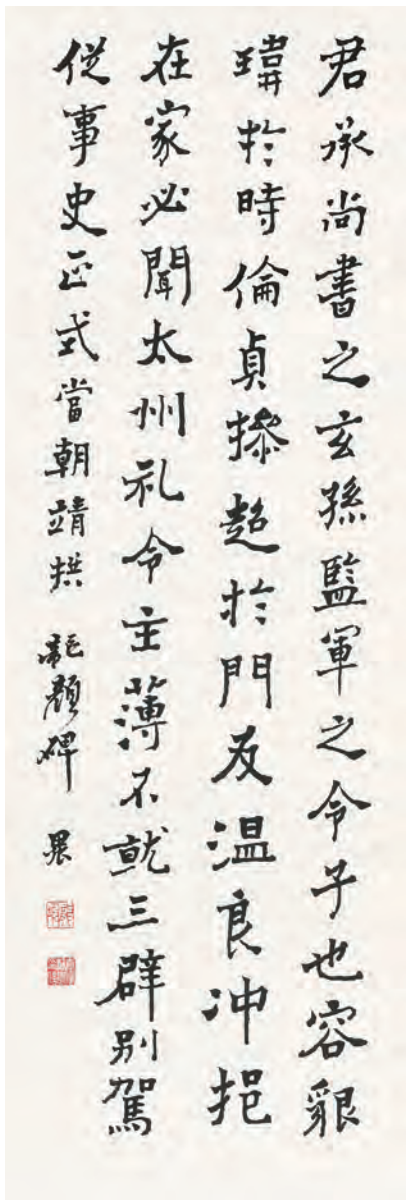 君承尚書之玄孫監軍之令子也容貇
瑋於時倫貞操超於門友温良沖挹
在家必聞太州礼令主薄不就三辟別駕
從事史正式當朝靖拱 龍顏碑 㬎